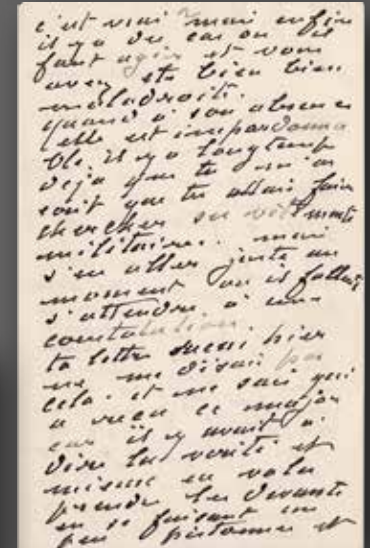 c'est vrai mais enfin
il y a des cas ou il
faut agir et vous
avez ete bien bien
maladroit.
quand a son absence
elle est impardonna
ble il y a longtemps
deja que tu
ecrit que tu allais faire
chercher
militaires. mais
s'en aller juste au
moment ou il fallait
s'attendre a une
constatation
ta lettre hier
ne me disait pas
cela. et ne sais qui
a recu ce major
car il y avait a
dire la verite et
meme en
prendre les devants
en se faisant un
peu et